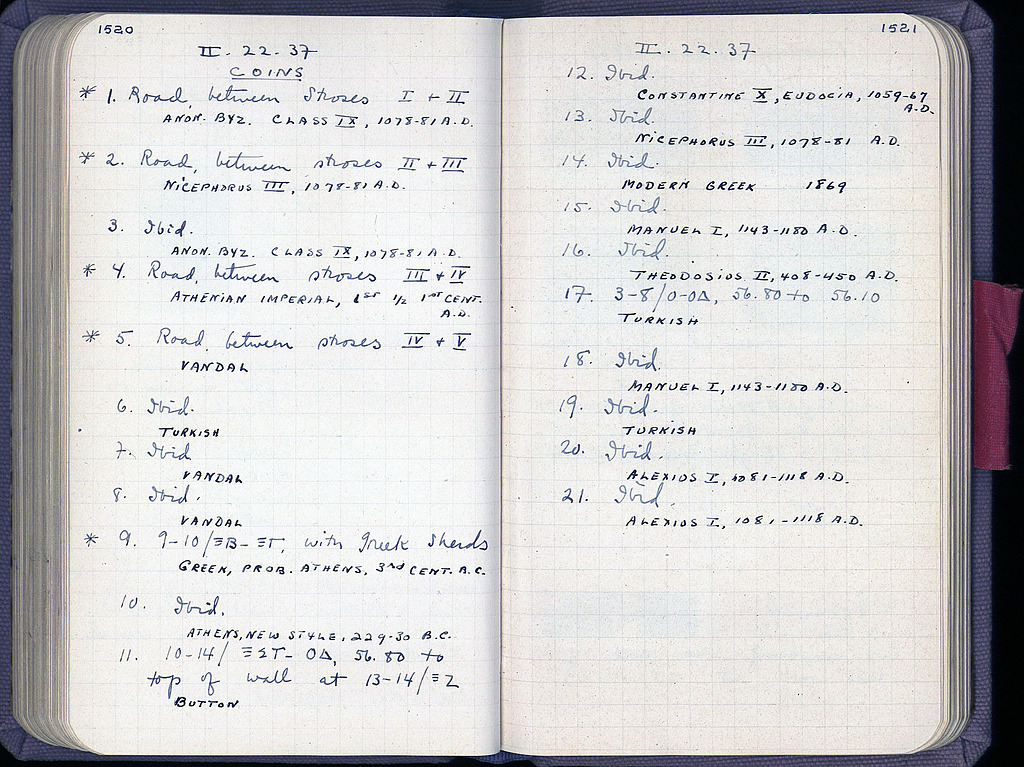 1520
II. 22. 37
COINS
* 1. Road, between Stroses I + II
ANON. BYZ. CLASS IX, 1078-81 A.D.
* 2. Road, between stroses II + III
NICEPHORUS III, 1078-81 A.D.
3. Ibid.
ANON. BYZ. CLASS IX, 1078-81 A.D.
* 4. Road, between stroses III + IV
ATHENIAN IMPERIAL, 1ST 1/2 1ST CENT.
A.D.
* 5. Road, between stroses IV + V
VANDAL
6. Ibid.
TURKISH
7. Ibid
VANDAL
8. Ibid.
VANDAL
* 9. 9-10/ΞB-ΞΓ, with Greek Sherds
GREEK, PROB. ATHENS, 3rd CENT. A.C.
10. Ibid.
ATHENS, NEW STYLE, 229-30 B.C.
11. 10-14/ ΞΣΤ- ΟΔ, 56.80 to
top of wall at 13-14/ΞΖ
BUTTON
1521
II. 22. 37
12. Ibid.
CONSTANTINE X, EUDOCIA, 1059-67
A.D.
13. Ibid.
NICEPHORUS III, 1078-81 A.D.
14. Ibid.
MODERN GREEK 1869
15. Ibid.
MANUEL I, 1143-1180 A.D.
16. Ibid.
THEODOSIOS II, 408-450 A.D.
17. 3-8/Ο-ΟΔ, 56.80 to 56.10
TURKISH
18. Ibid.
MANUEL I, 1143-1180 A.D.
19. Ibid.
TURKISH
20. Ibid.
ALEXIOS I, 1081-1118 A.D.
21. Ibid.
ALEXIOS I, 1081-1118 A.D.